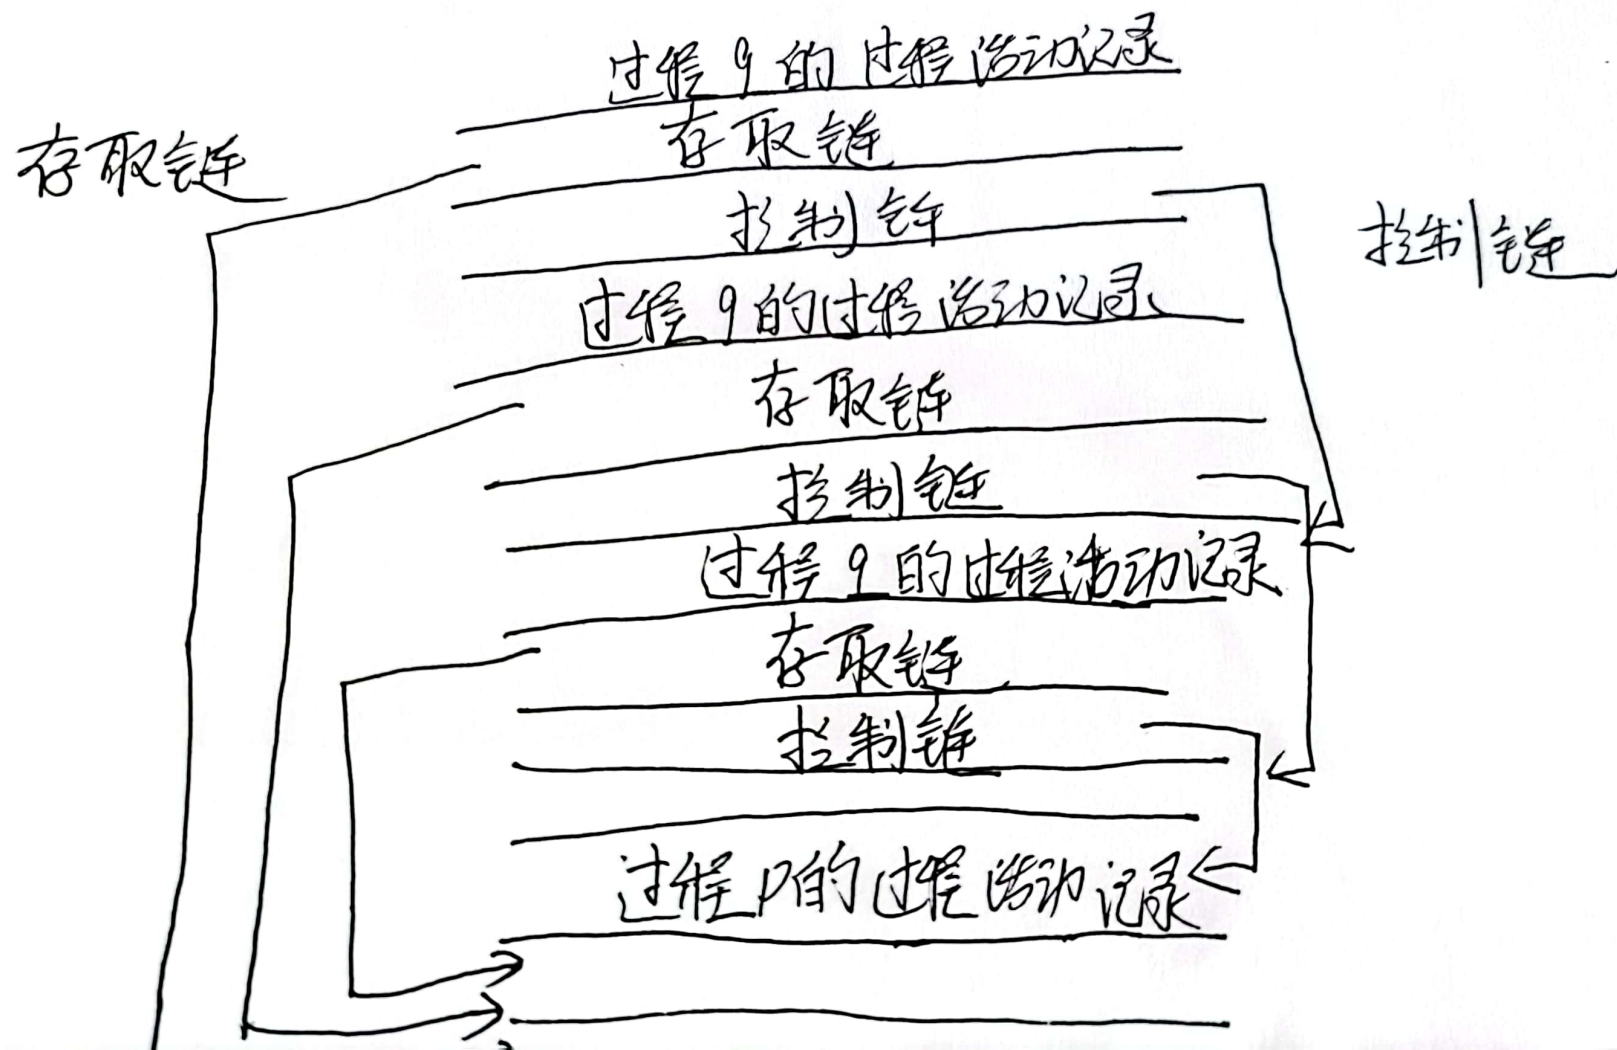 过程q的过程活动记录
存取链
存取链
控制链
控制链
过程q的过程活动记录
存取链
控制链
过程q的过程活动记录
存取链
控制链
过程p的过程活动记录